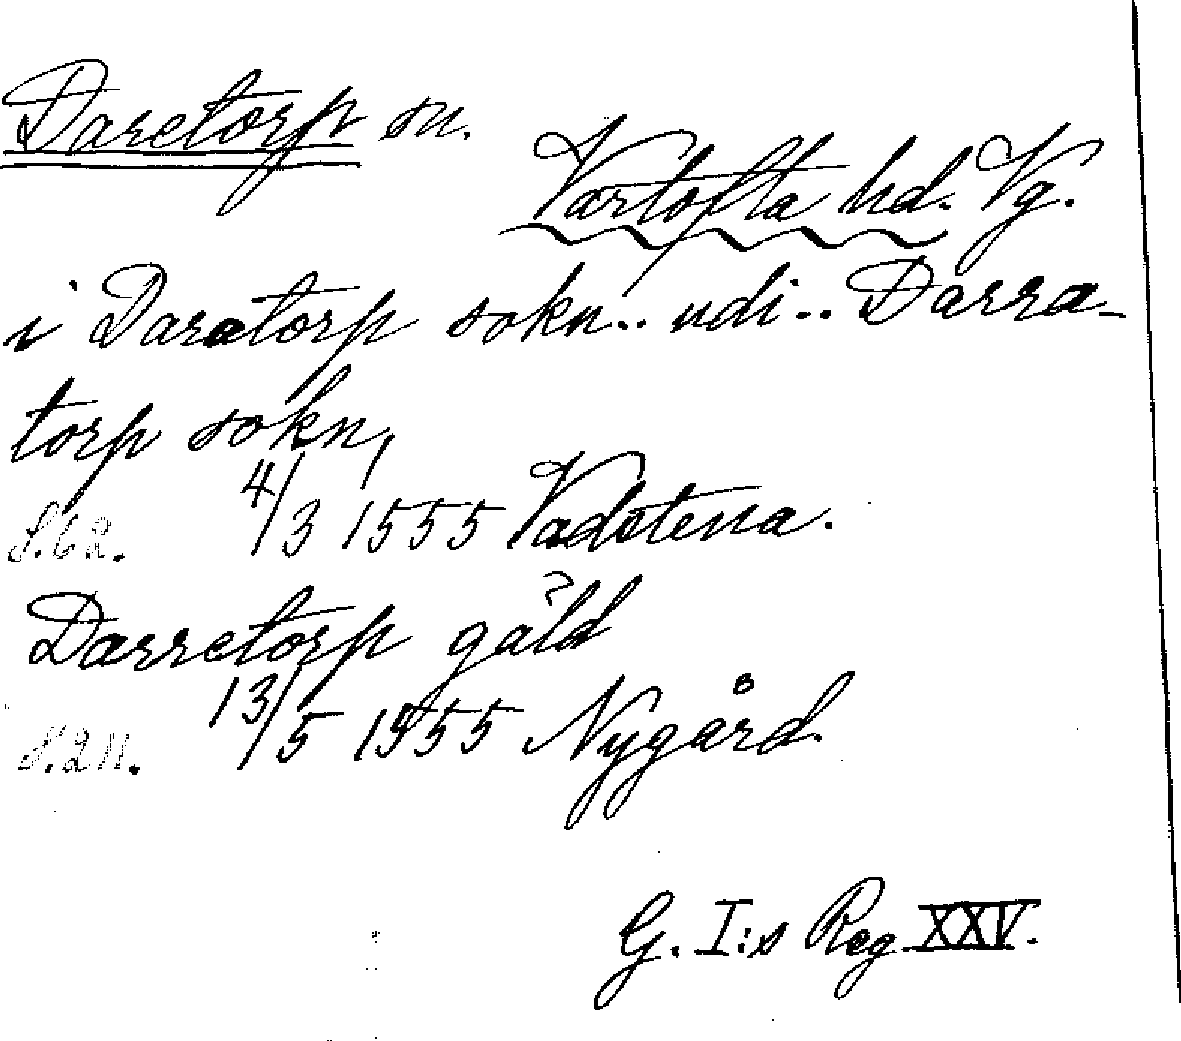 Daretorp sn.
Vartofta hd. Vg.
i Daratorp sokn.. udi.. Darra-
torp sokn,
S. 62. 4/3 1555 Vadstena.
Darretorp gäld
S. 211. 13/5 1555 Nygård.
G. I:s Reg XXV.